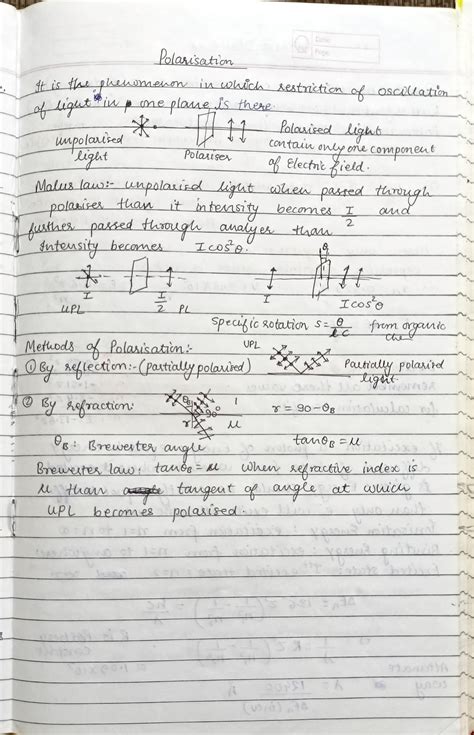 Date:
Page:
Polarisation
It is the phenomenon in which restriction of oscillation
of light in one plane is there.
unpolarised
light
Polariser
Polarised light
contain only one component
of Electric field.
Malus law:- unpolarised light when passed through
polariser than it intensity becomes I/2 and
further passed through analyer than
intensity becomes I cos²θ.
θ
I
I/2
I
I cos²θ
UPL
PL
Specific rotation s = θ/lc from organic
che
Methods of Polarisation:-
UPL
① By reflection:- (partially polarised)
Partially polarised
light
② By refraction:
θB
90°
1
r
μ
r = 90 - θB
θB: Brewster angle
tanθB = μ
Brewster law: tanθB = μ when refractive index is
μ than tangent of angle at which
UPL becomes polarised.